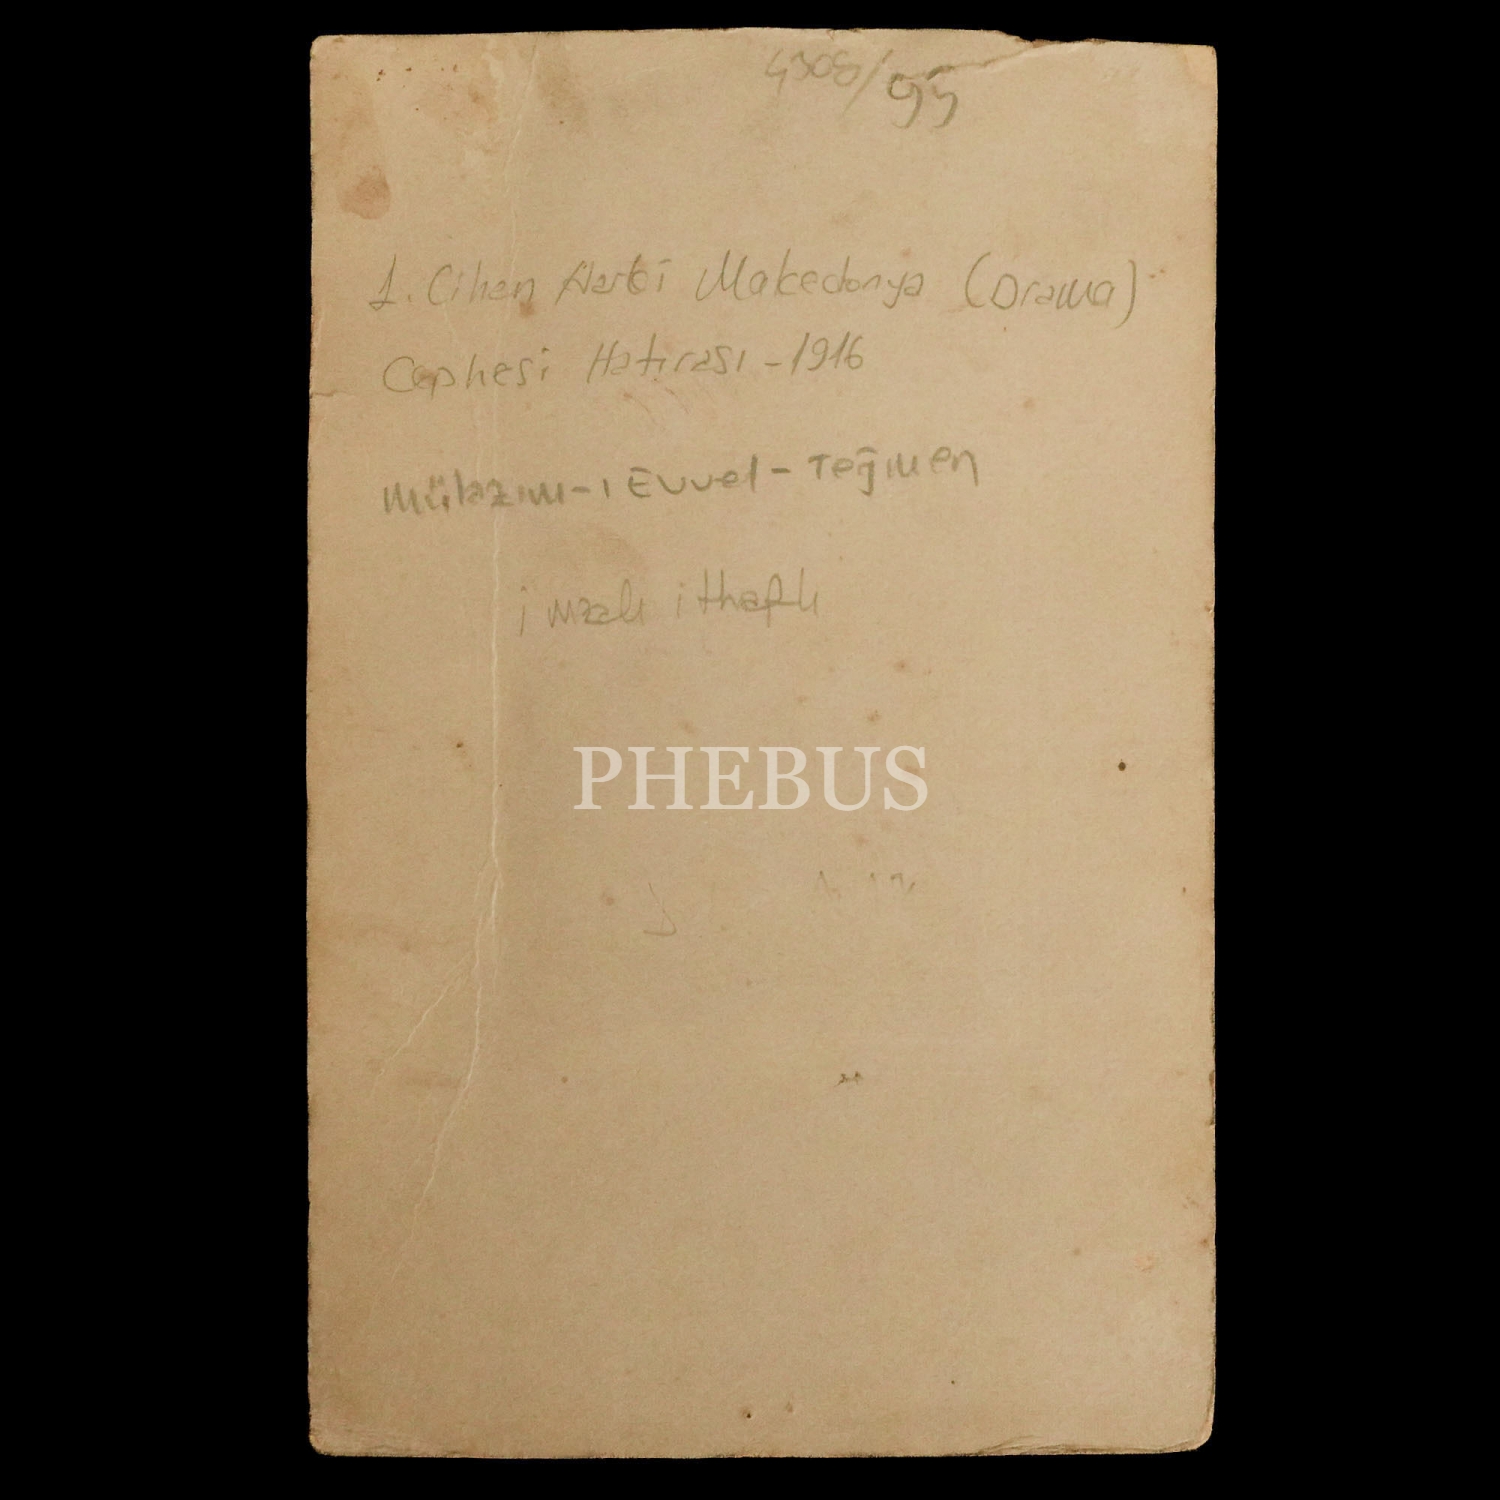 4308/95
1. Cihan Harbi Makedonya (Drama)
Cephesi Hatırası - 1916
Mülazım-ı Evvel - Teğmen
imzalı ithaflı
PHEBUS